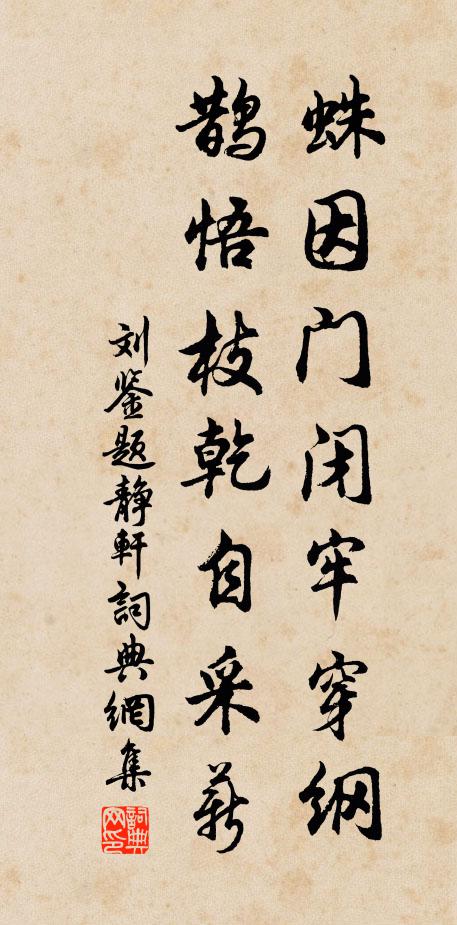 蛛因门闭牢穿纲
鹊悟枝乾自采薪
刘鉴题静軒詞典網集
詞典网印